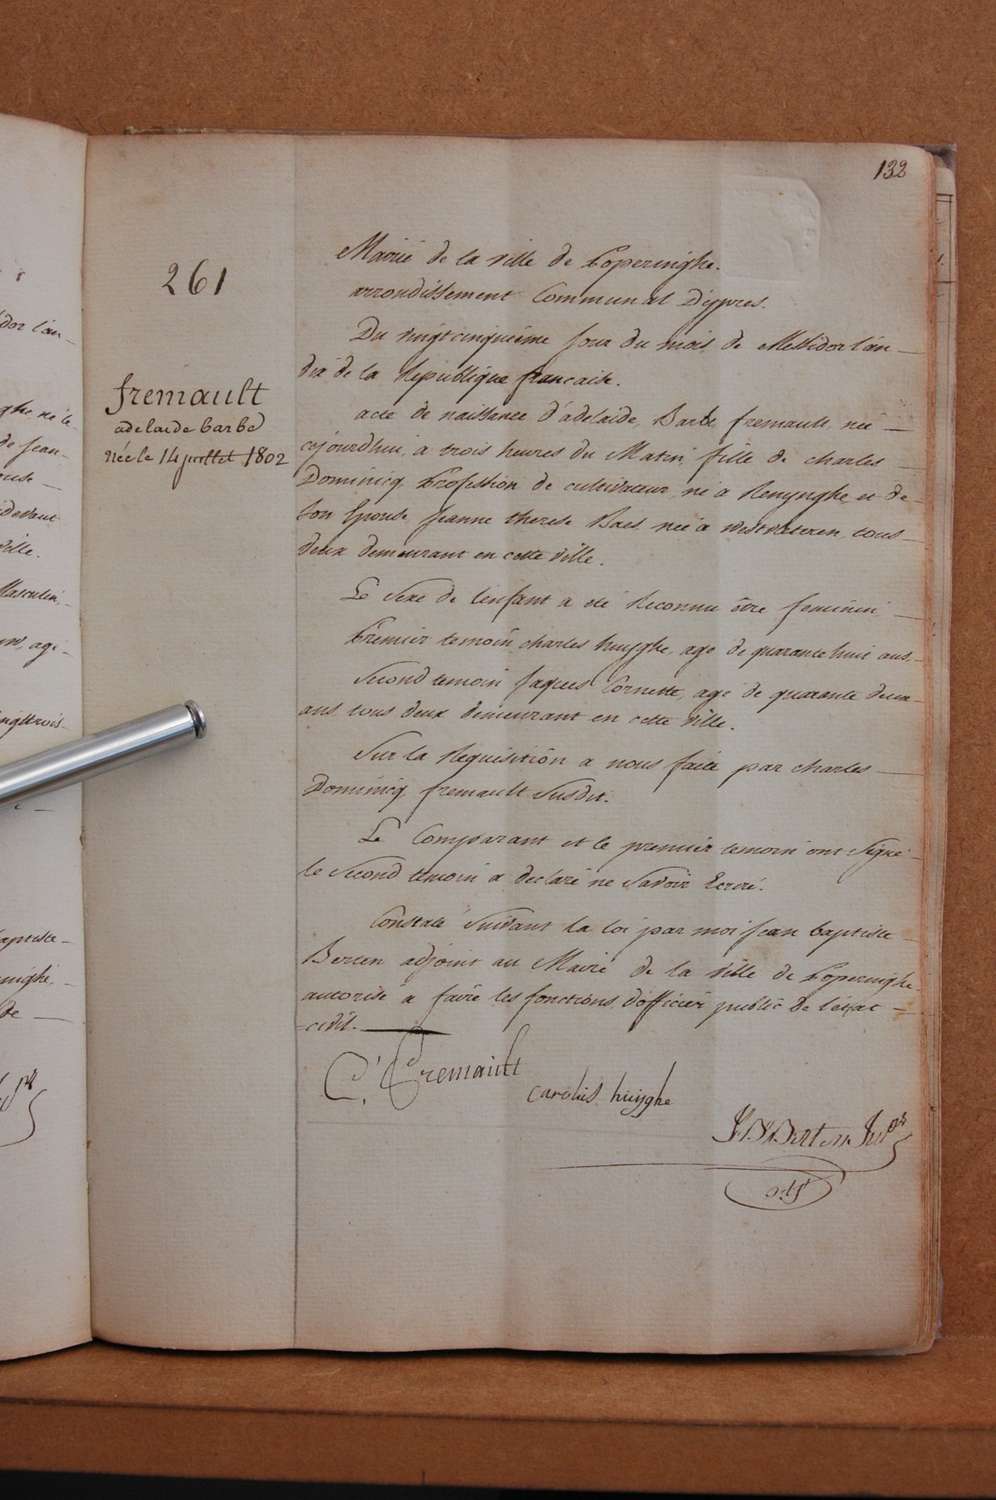 132
261
fremault
adelaide barbe
née le 14 juillet 1802
Mairie de la ville de Poperinghe.
arrondissement Communal D'ypres.
Du vingtcinquieme jour du mois de Messidor l'an
dix de la Republique francaise.
acte de naissance d'adelaide, Barbe fremault, née
cejourdhui, a trois heures du Matin, fille de charles
Dominicq, Profession de cultivateur, né a Renynghe, et de
son Epouse Jeanne therese Baes née a westvleteren, tous
deux demeurant en cette ville.
Le Sexe de l'enfant a eté Reconnu être feminin
Premier temoin, charles huyghe, agé de quarante huit ans,
Second temoin Jaques Cornette, agé de quarante deux
ans, tous deux demeurant en cette ville.
Sur la Requisition a nous faite par charles
Dominicq fremault Susdit.
Le Comparant et le premier temoin ont Signé
le Second temoin a declaré ne Savoir Ecrire.
Constaté Suivant la loi par moi Jean baptiste
Berten adjoint au Maire de la ville de Poperinghe
autorisé a faire les fonctions d'officier public de l'état
civil.
C. Fremault
carolus huyghe
J B Berten
adjt
dor l'an
ghe né le
de Jean
ville.
Masculin,
agé
baptiste
inghe,
de